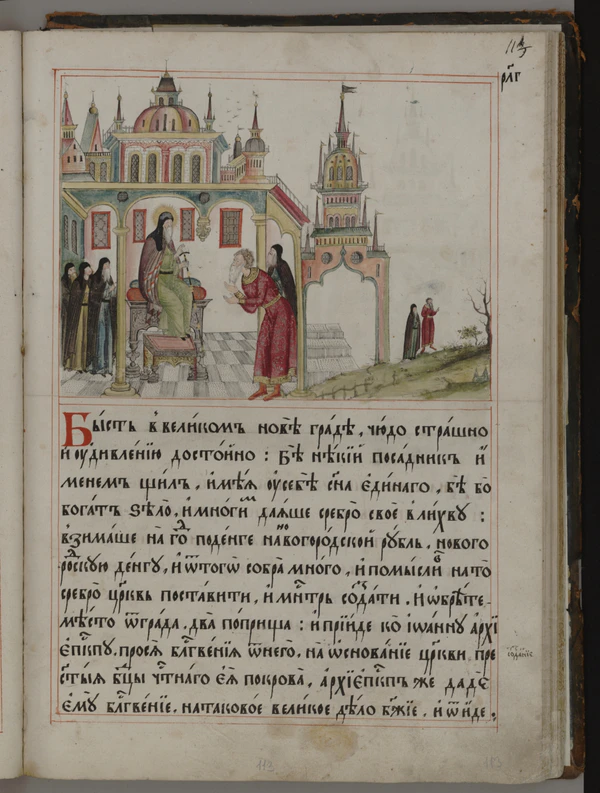 114
рлг
Бы́сть в вели́комъ но́вѣ гра́дѣ, чю́до стра́шно
и҆ ᲂу҆дивле́нїю досто́йно : Бѣ̀ нѣ́кїй поса́дникъ и҆
менемъ щи́лъ , и҆мѣ́ѧ ᲂу҆себѐ сн҃а є҆ди́наго , бѣ́ бо
бога́тъ ѕѣло̀ , и҆мно́ги даѧ́ше сребро̀ своѐ в ли́хву :
взима́ше на го́д поде́нге на новогоро́дской рꙋ́бль , но́вого
ро́дскую де́нгу , и҆ ѿтогѡ̀ собра̀ мно́го , и҆ помы́сли на то̀
сребро̀ цр҃квь поста́вити , и҆ мн҃трь созда́ти , и҆ ѡ҆брѣ́те
мѣ́сто ѿгра́да , два̀ по́прища : и҆ прїи́де ко і҆ѡа́нну а҆рхї
є҆пⷭ҇кпꙋ , просѧ̀ блг҃ве́нїѧ ѿнего̀ , на ѡ҆снова́нїе цр҃кви пре
ст҃ы́ѧ бц҃ы чтⷭ҇наго є҆ѧ̀ покрова̀ , а҆рхїє҆пⷭ҇кпъ же дадѐ
є҆мꙋ̀ блг҃ве́нїе , на таково́е вели́кое дѣ́ло бж҃їе , и҆ ѿи́де ,
113